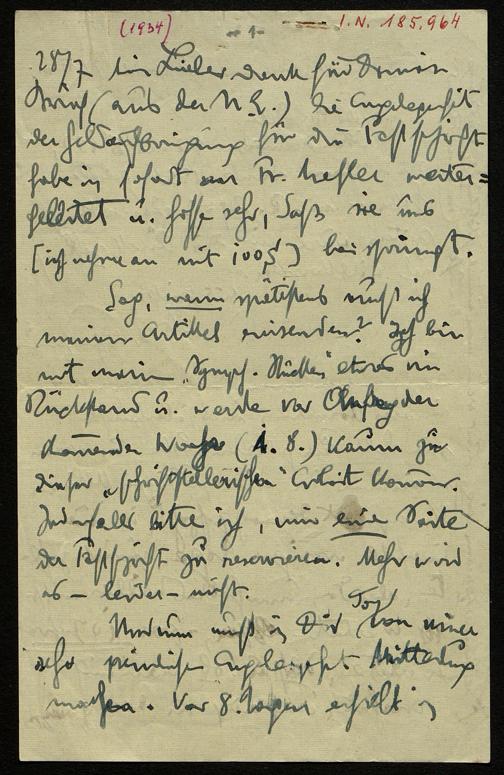 (1934) -1- I.N. 185.964
28/7 Mein Lieber, dank für Deinen
Brief (aus der N.E.) Die Angelegenheit
der Geldaufbringung für die Festschrift
habe ich sofort an Fr. Heller weiter=
geleitet u. hoffe sehr, daß sie uns
[ich nehme an mit 100 S] beispringt.
Sag, wann spätestens muß ich
meinen Artikel einsenden? Ich bin
mit meinen „Symph. Stücken" etwas im
Rückstand u. werde vor Anfang der
kommenden Woche (1. 8.) kaum zu
dieser „schriftstellerischen" Arbeit kommen.
Jedenfalls bitte ich, mir eine Seite
der Festschrift zu reservieren. Mehr wird
es – leider – nicht.
Und nun muß ich Dir von einer
sehr peinlichen Angelegenheit Mitteilung
machen. Vor 8 Tagen erhielt ich